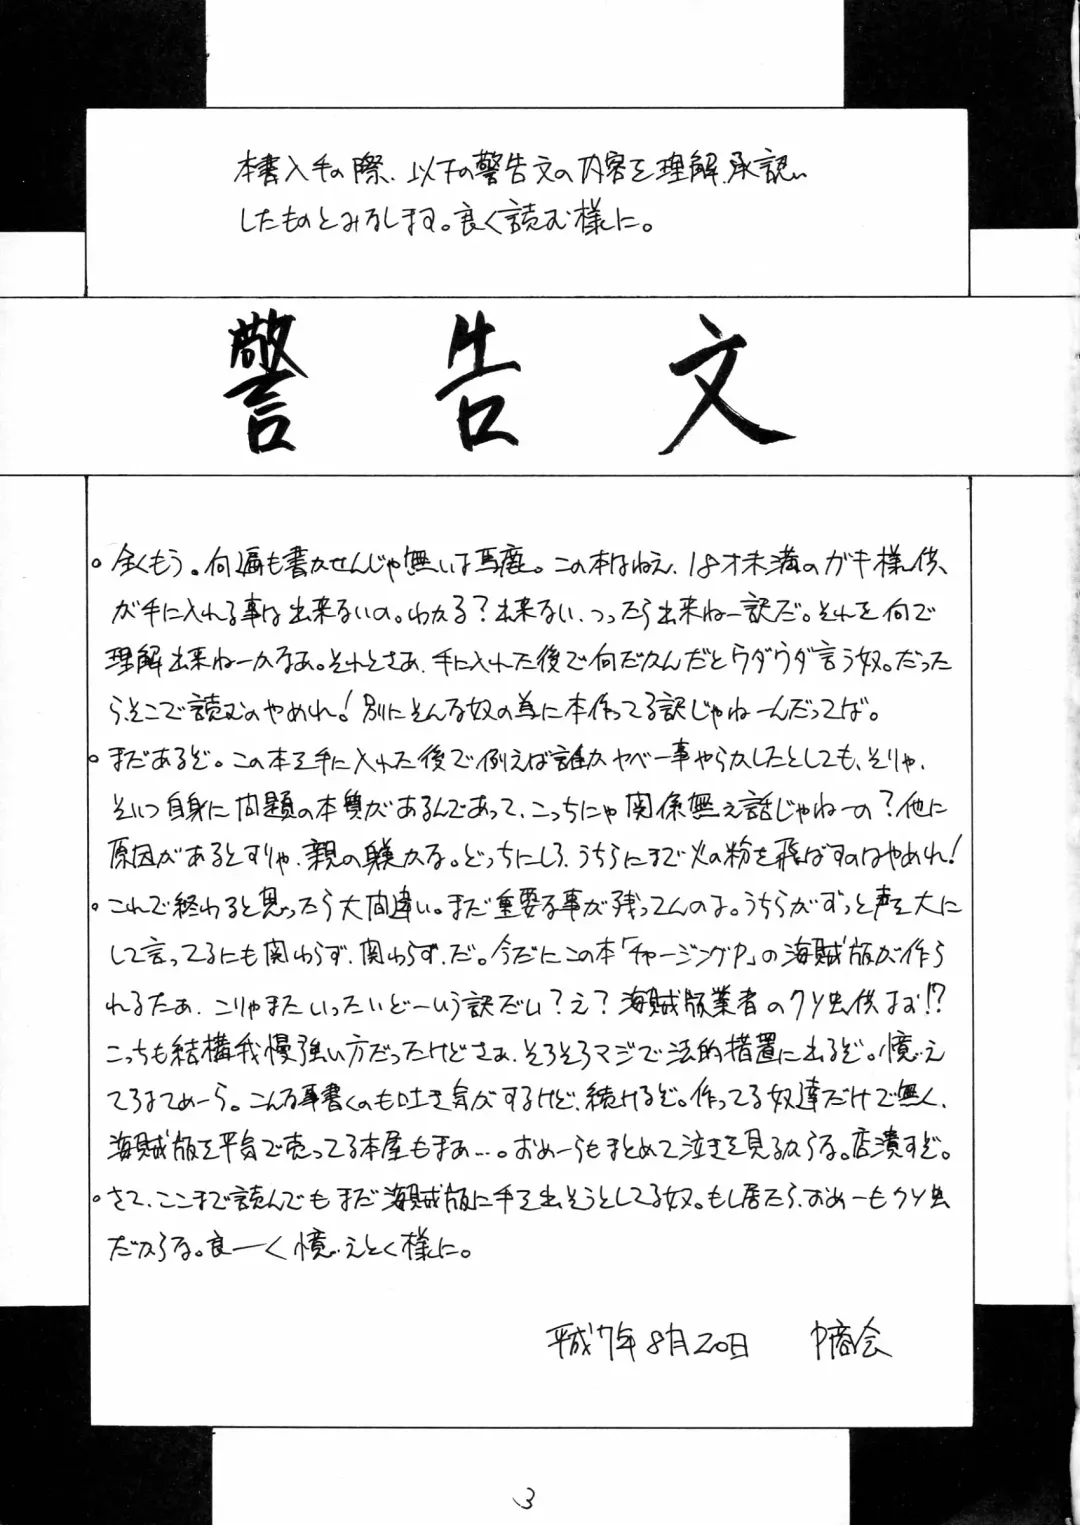 本書入手の際、以下の警告文の内容を理解、承認い
したものとみなします。良く読む様に。
警告文
。全くもう。何遍も書かせんじゃ無いは馬鹿。この本はねえ、18才未満のガキ様供、
が手に入れる事は出来ないの。わかる？出来ない、つったら出来ねー訳だ。それを何で
理解出来ねーかなあ。それとさあ、手に入れた後で何だかんだとウダウダ言う奴。だった
ら、そこで読むのやめれ！別にそんな奴の為に本作ってる訳じゃねーんだってば。
。まだあるぞ。この本を手に入れた後で例えば誰かヤベー事やらかしたとしても、そりゃ、
そいつ自身に問題の本質があるんであって、こっちにゃ関係無え話じゃねーの？他に
原因があるとすりゃ、親の躾かな。どっちにしろ、うちらにまで火の粉を飛ばすのはやめれ！
。これで終わると思ったら大間違い。まだ重要な事が残ってんのよ。うちらがずっと声を大に
して言ってるにも関わらず、関わらず、だ。今だにこの本「チャージングP」の海賊版が作ら
れるたあ、こりゃまたいったいどーいう訳だい？え？海賊版業者のクソ虫供よお!?
こっちも結構我慢強い方だったけどさぁ、そろそろマジで法的措置に出るぞ。憶え
てろよてめーら。こんな事書くのも吐き気がするけど、続けるぞ。作ってる奴達だけで無く、
海賊版を平気で売ってる本屋もまあ…。おめーらもまとめて泣きを見るからな。店潰すぞ。
。さて、ここまで読んでもまだ海賊版に手を出そうとしてる奴。もし居たら、おめーもクソ虫
だからな。良ーく憶えとく様に。
平成7年8月20日 P商会
3